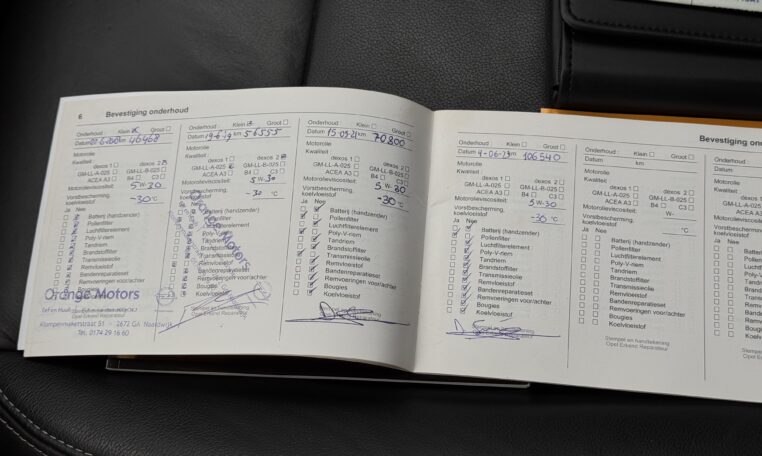 6 Bevestiging onderhoud
Onderhoud: Klein Groot
46468
Motorolie
Kwaliteit:
dexos 1 dexos 2
GM-LL-A-025 GM-LL-B-025
ACEA A3 B4 C3
Motorolieviscositeit:
5 W 30
Vorstbescherming,
koelvloeistof -30 °C
Ja Nee
Batterij (handzender)
Pollenfilter
Luchtfilterelement
Poly-V-riem
Tandriem
Brandstoffilter
Transmissieolie
Remvloeistof
Bandenreparatieset
Remvoeringen voor/achter
Bougies
Koelvloeistof
Orange Motors
Klompenmakerstraat 51 2672 GA Naaldwijk
Tel. 0174 29 16 60
Onderhoud: Klein Groot
Datum 19-6-19 km 56555
Motorolie
Kwaliteit:
dexos 1 dexos 2
GM-LL-A-025 GM-LL-B-025
ACEA A3 B4 C3
Motorolieviscositeit:
5 W-30
Vorstbescherming,
koelvloeistof -30 °C
Batterij (handzender)
Pollenfilter
Luchtfilterelement
Poly-V-riem
Tandriem
Brandstoffilter
Transmissieolie
Remvloeistof
Bandenreparatieset
Remvoeringen voor/achter
Bougies
Koelvloeistof
Orange Motors
Opel Erkend Reparateur
Onderhoud: Klein Groot
Datum 15-09-21 km 70800
Motorolie
Kwaliteit:
dexos 1 dexos 2
GM-LL-A-025 GM-LL-B-025
ACEA A3 B4 C3
Motorolieviscositeit:
5 W-30
Vorstbescherming,
koelvloeistof -30 °C
Ja Nee
Batterij (handzender)
Pollenfilter
Luchtfilterelement
Poly-V-riem
Tandriem
Brandstoffilter
Transmissieolie
Remvloeistof
Bandenreparatieset
Remvoeringen voor/achter
Bougies
Koelvloeistof
Opel Erkend Reparateur
Bevestiging on
Onderhoud: Klein Groot
Datum 4-06-24 km 106540
Motorolie
Kwaliteit:
dexos 1 dexos 2
GM-LL-A-025 GM-LL-B-025
ACEA A3 B4 C3
Motorolieviscositeit:
5 W-30
Vorstbescherming,
koelvloeistof -30 °C
Ja Nee
Batterij (handzender)
Pollenfilter
Luchtfilterelement
Poly-V-riem
Tandriem
Brandstoffilter
Transmissieolie
Remvloeistof
Bandenreparatieset
Remvoeringen voor/achter
Bougies
Koelvloeistof
Onderhoud: Klein Groot
Datum km
Motorolie
Kwaliteit:
dexos 1 dexos 2
GM-LL-A-025 GM-LL-B-025
ACEA A3 B4 C3
Motorolieviscositeit:
W-
Vorstbescherming,
koelvloeistof °C
Ja Nee
Batterij (handzender)
Pollenfilter
Luchtfilterelement
Poly-V-riem
Tandriem
Brandstoffilter
Transmissieolie
Remvloeistof
Bandenreparatieset
Remvoeringen voor/achter
Bougies
Koelvloeistof
Stempel en handtekening
Opel Erkend Reparateur
Onderhoud:
Datum
Motorolie
Kwaliteit:
dexos 1
GM-LL-A-025
ACEA A3
Motorolieviscositeit:
Vorstbescherming,
koelvloeistof
Ja Nee
Batterij
Pollenfilter
Luchtfilter
Poly-V-riem
Tandriem
Brandstof
Transmis
Remvloei
Bandenre
Remvoeri
Bougies
Koelvloei
Stempel en
Opel Erkend